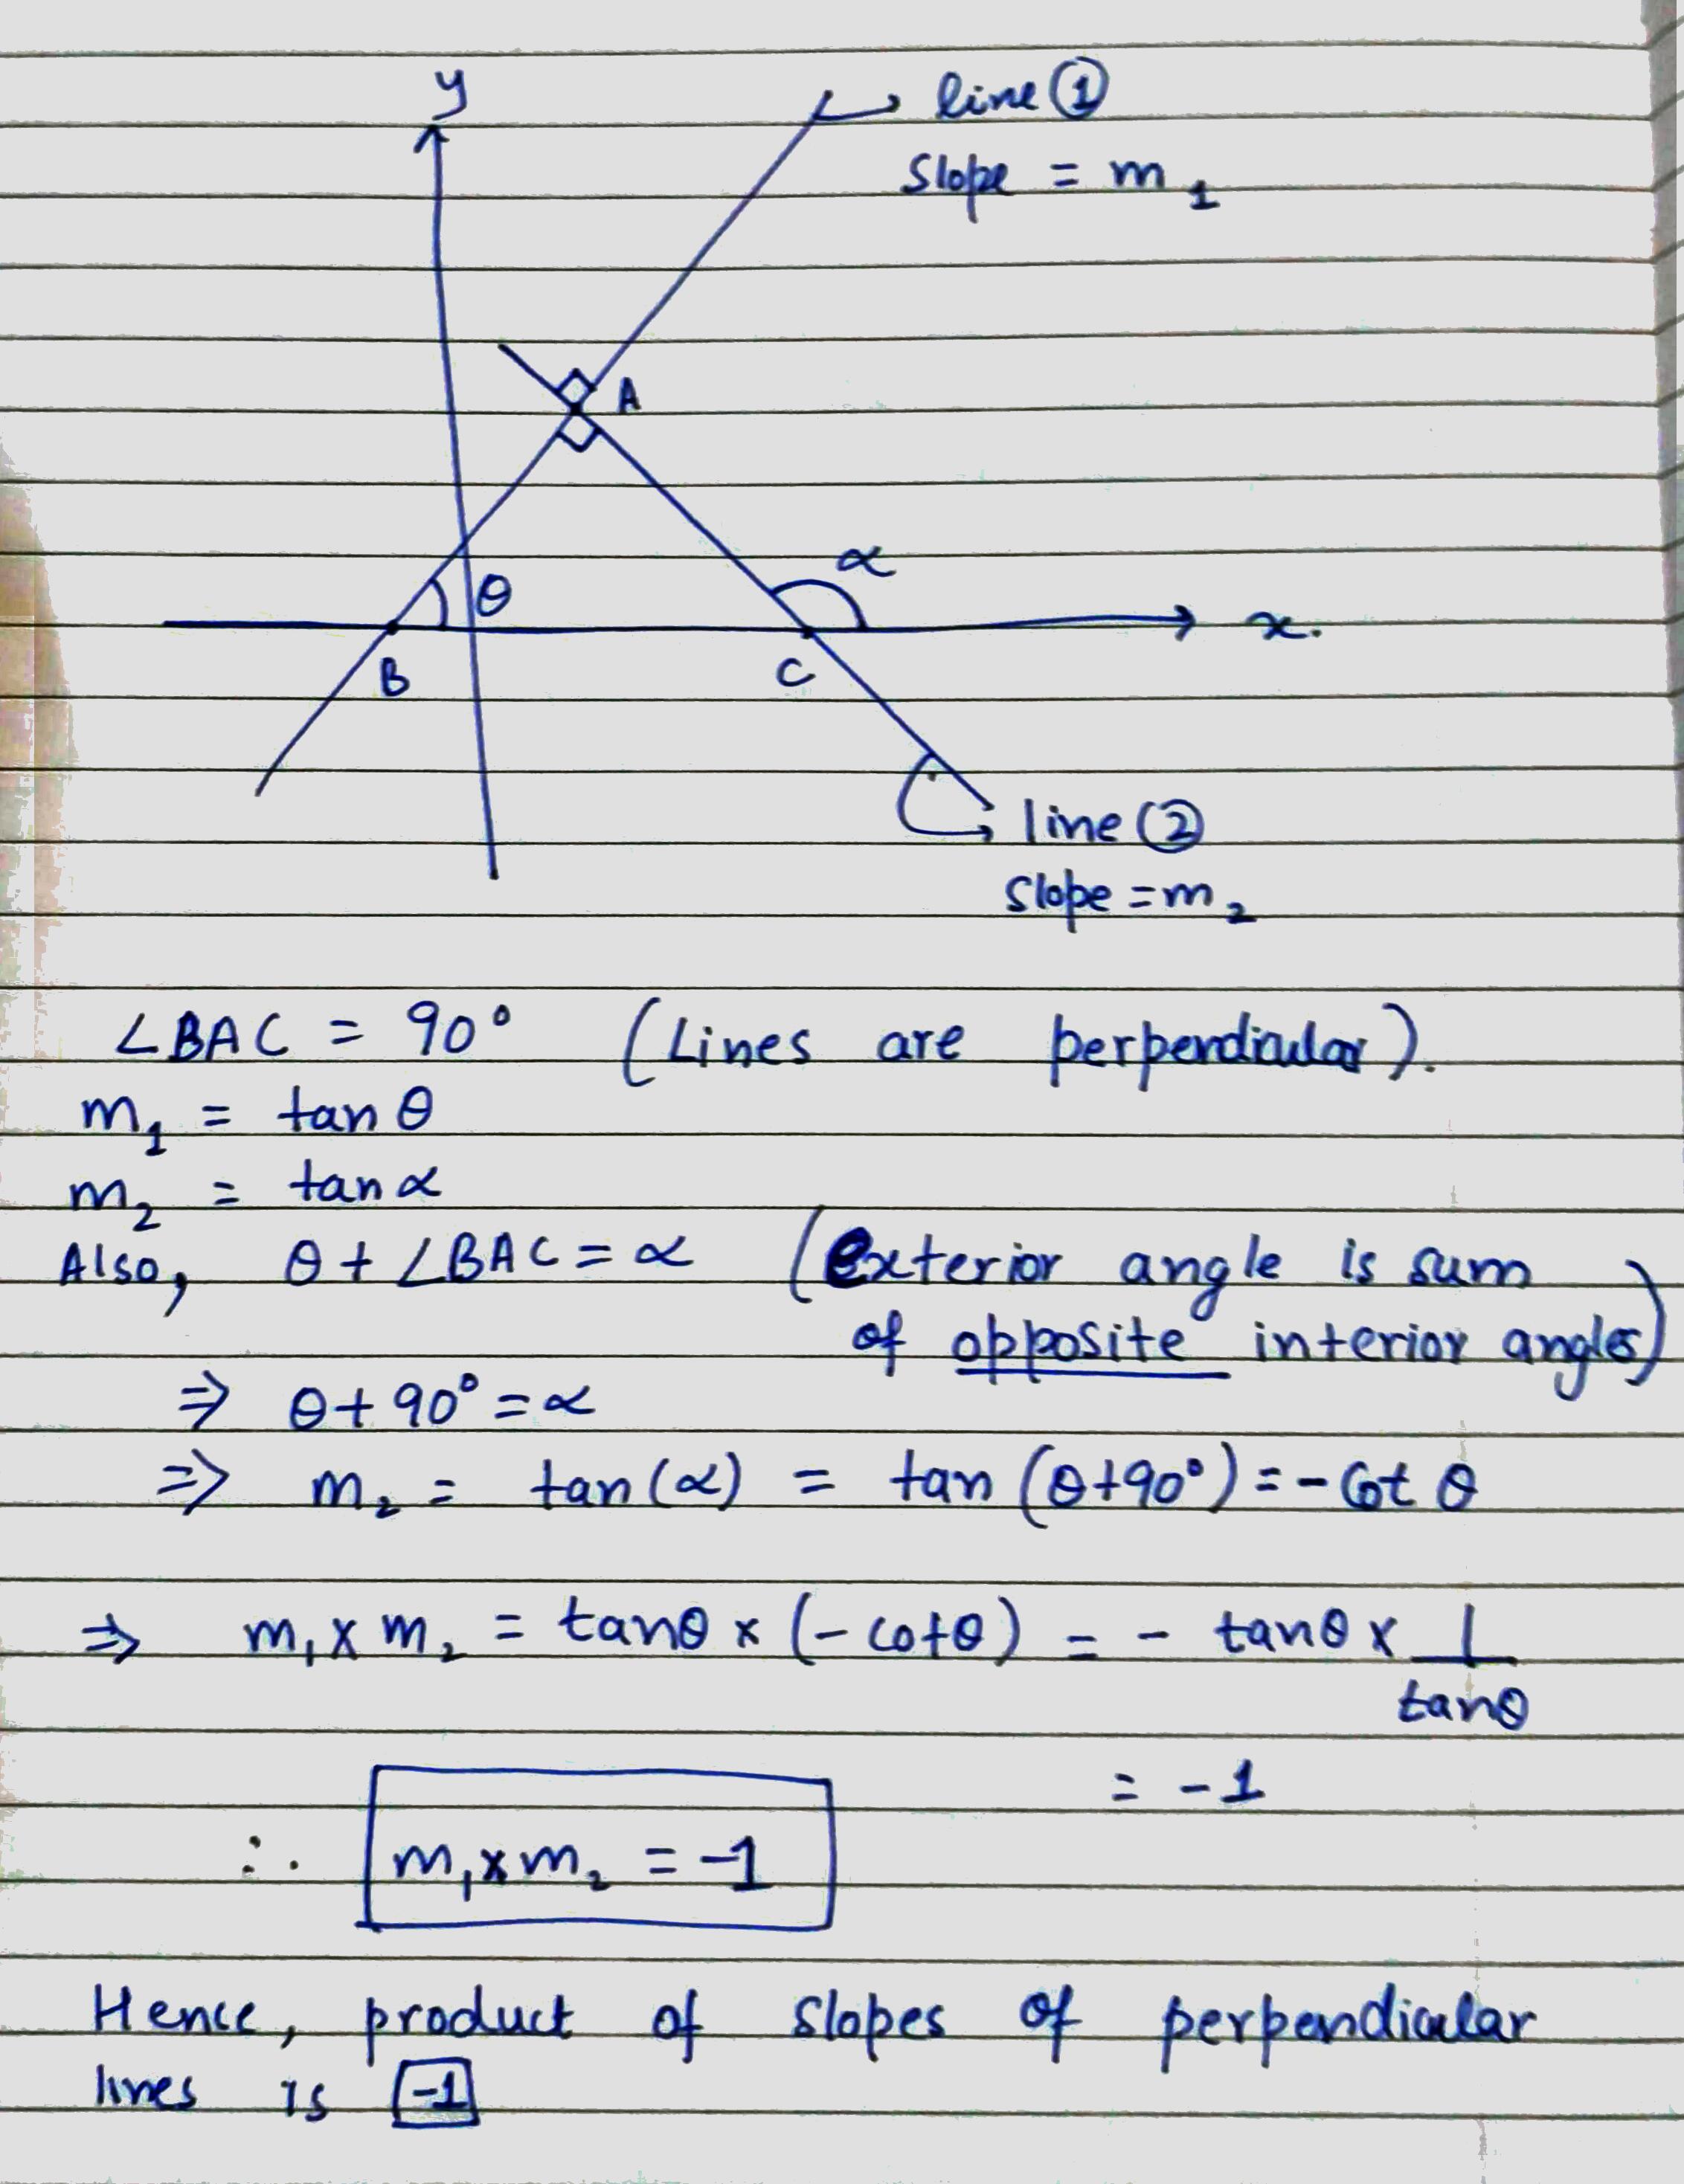 y
line ①
slope = m₁
A
α
θ
x.
B
C
line ②
slope = m₂
∠BAC = 90° (Lines are perpendicular).
m₁ = tan θ
m₂ = tan α
Also, θ + ∠BAC = α (exterior angle is sum
of opposite interior angles)
⇒ θ + 90° = α
⇒ m₂ = tan (α) = tan (θ+90°) = - Cot θ
⇒ m₁ x m₂ = tanθ x (- cotθ) = - tanθ x 1/tanθ
= -1
∴ m₁ x m₂ = -1
Hence, product of slopes of perpendicular
lines is -1